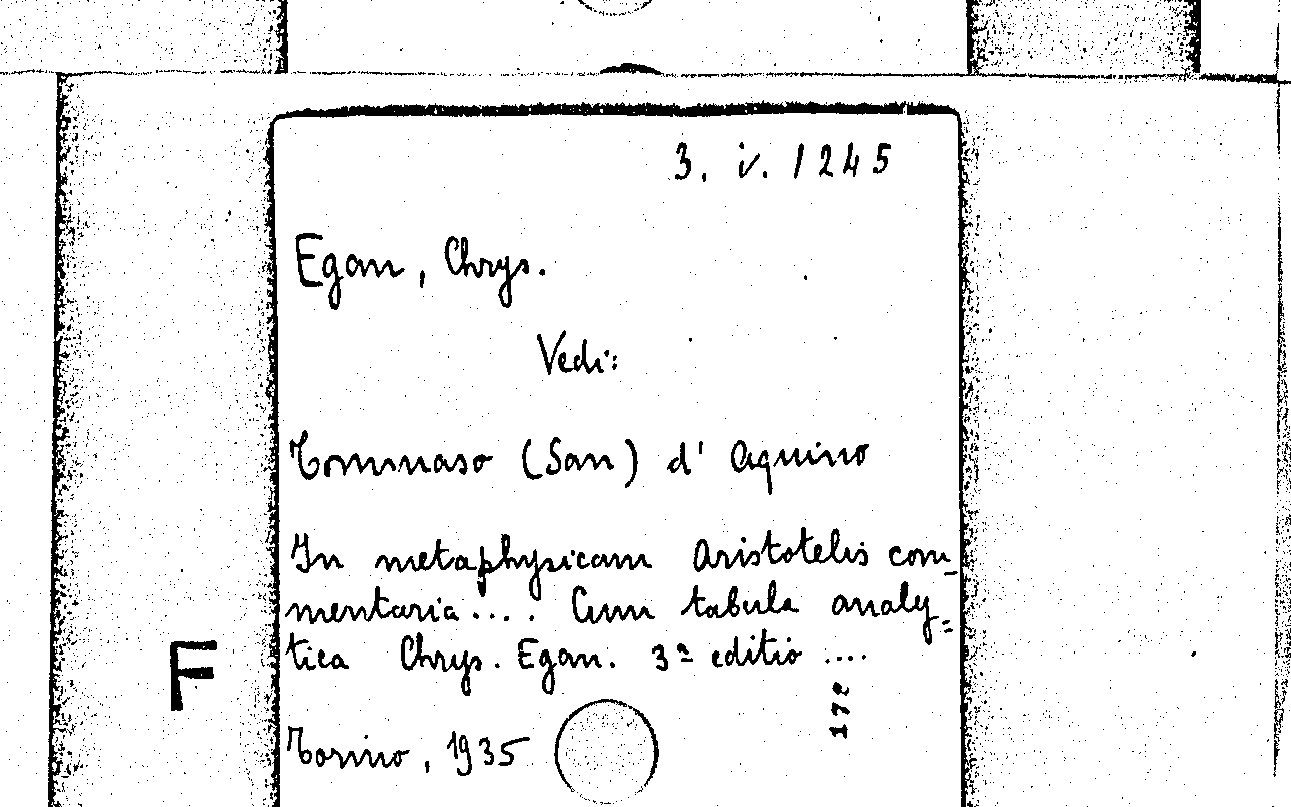 3. i. 1245
Egan, Chrys.
Vedi:
Tommaso (San) d' Aquino
In metaphysicam Aristotelis com-
mentaria.... Cum tabula analy=
tica Chrys. Egan. 3ª editio ....
F
Torino, 1935